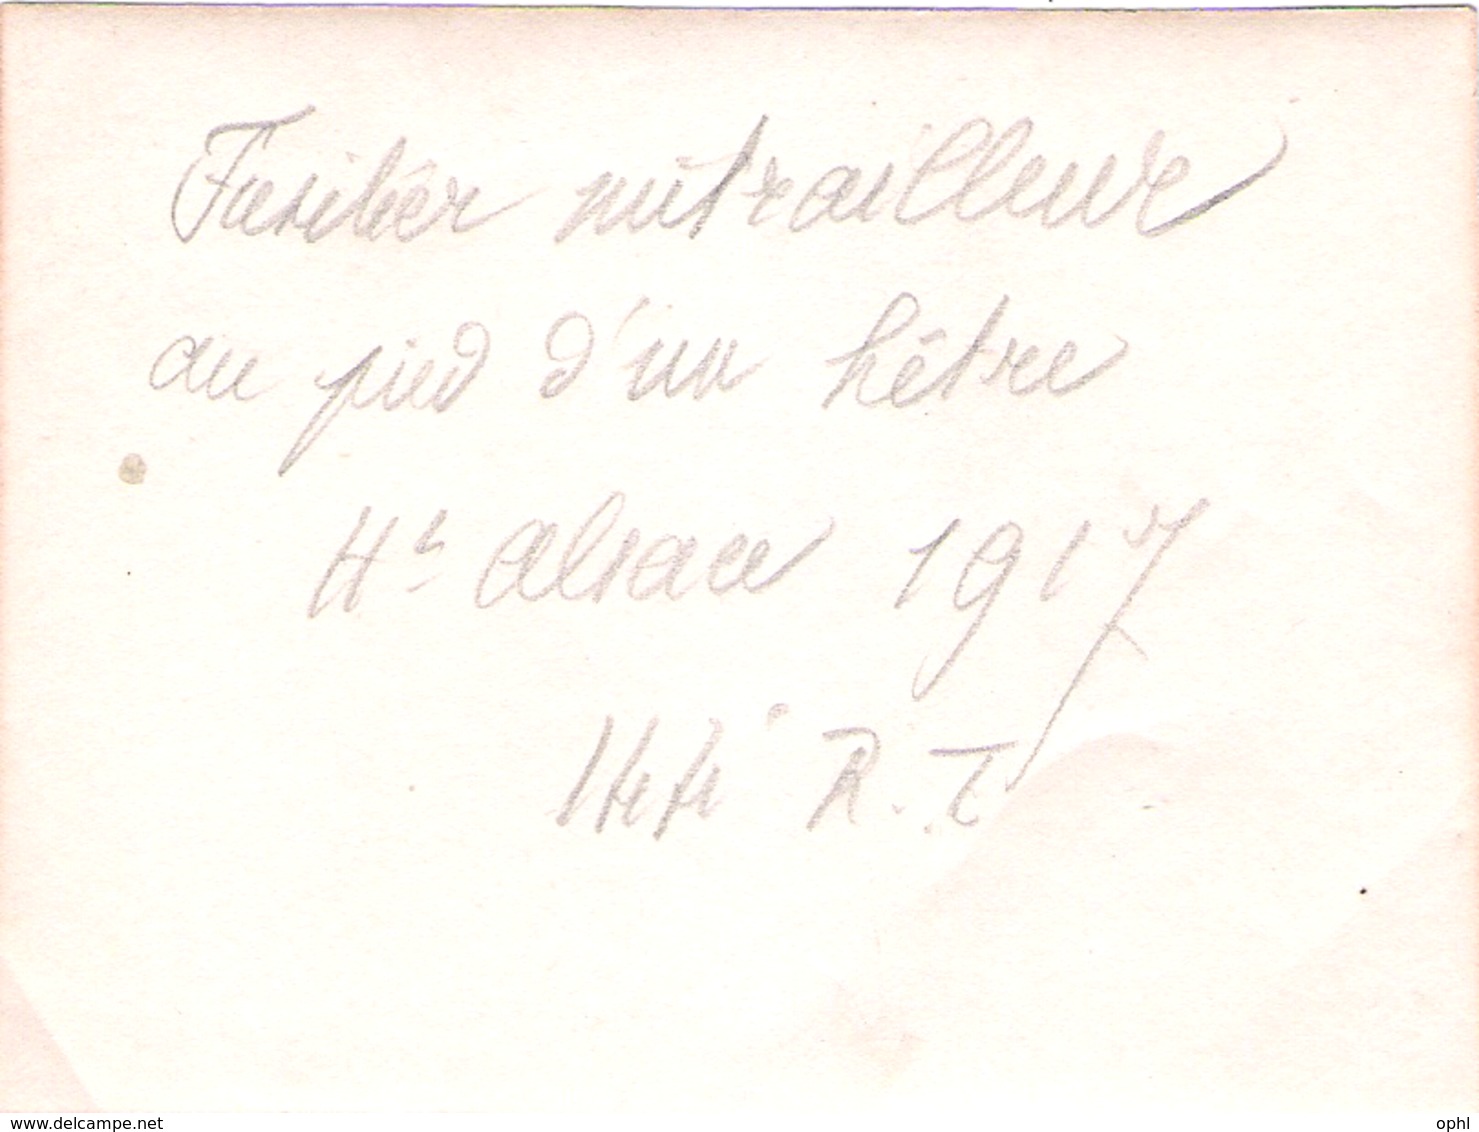 Fusilier mitrailleur
au pied d'un hêtre
Hte alsace 1917
144e R. I.
www.delcampe.net
ophl